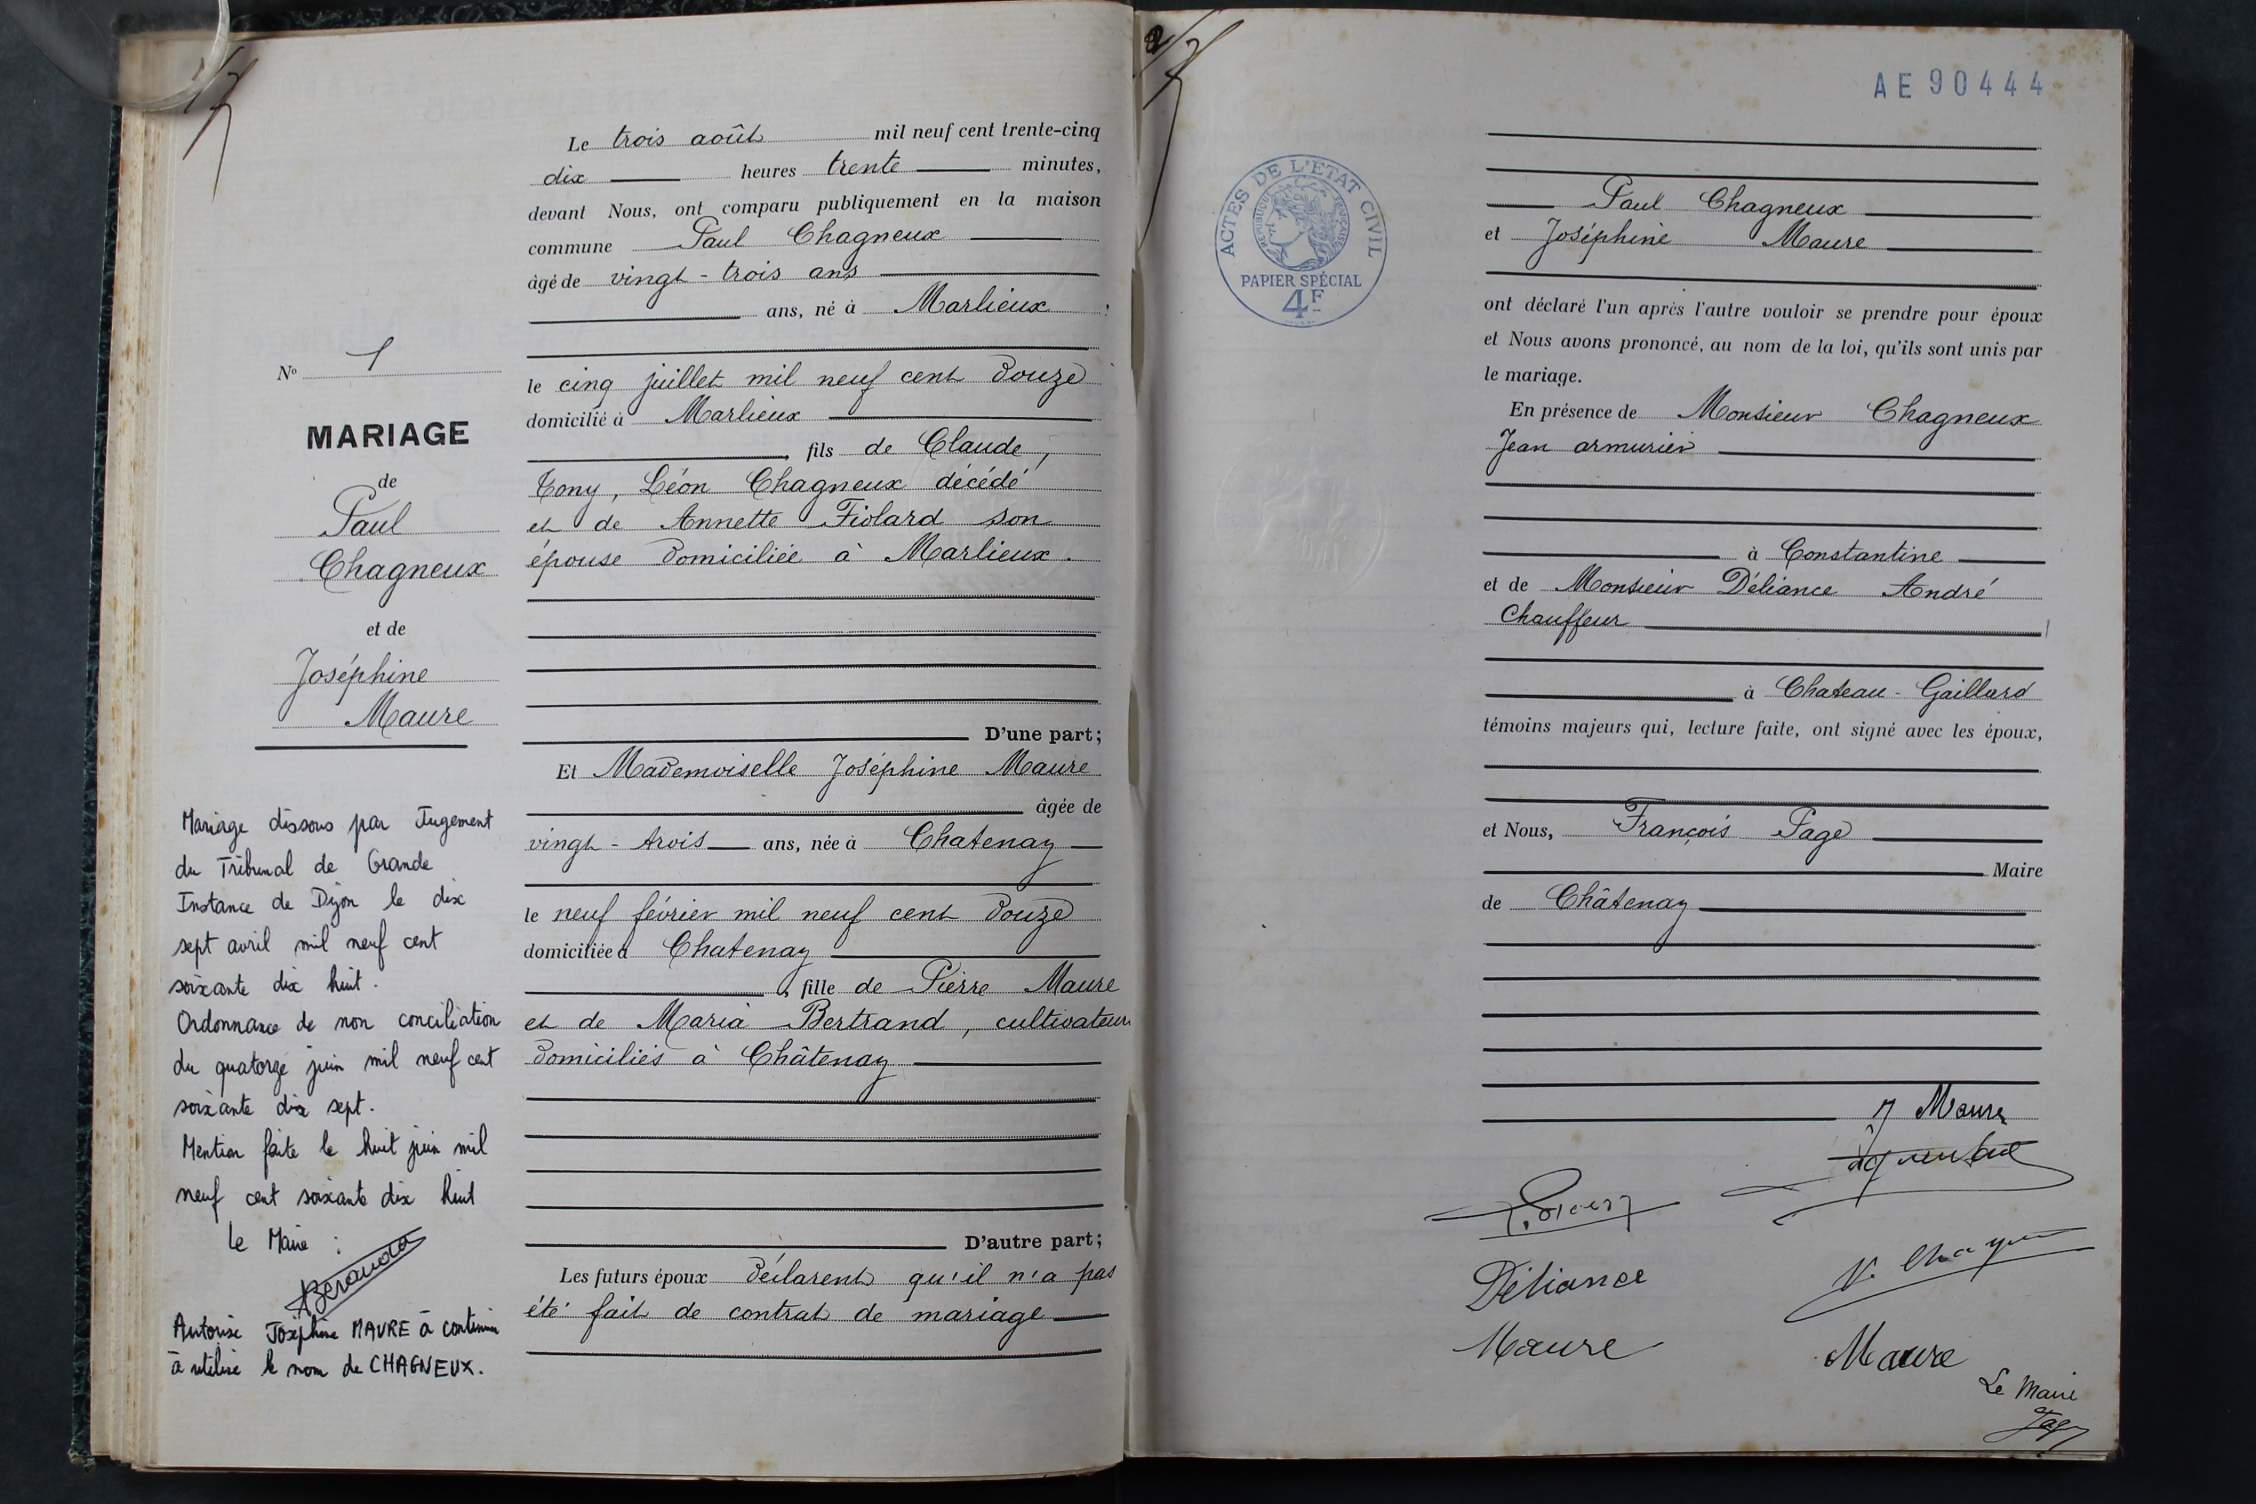 Le trois août mil neuf cent trente-cinq
dix heures trente minutes,
devant Nous, ont comparu publiquement en la maison
commune Paul Chagneux
âgé de vingt-trois ans
ans, né à Marlieux
le cinq juillet mil neuf cent douze
domicilié à Marlieux
, fils de Claude,
Tony, Léon Chagneux décédé
et de Annette Fiolard son
épouse domiciliée à Marlieux.
D'une part;
Et Mademoiselle Joséphine Maure
âgée de
vingt-trois ans, née à Chatenay
le neuf février mil neuf cent douze
domiciliée à Chatenay
, fille de Pierre Maure
et de Maria Bertrand, cultivateurs
domiciliés à Châtenay
D'autre part;
Les futurs époux déclarent qu'il n'a pas
été fait de contrat de mariage
Nº 1
MARIAGE
de
Paul
Chagneux
et de
Joséphine
Maure
Mariage dissous par Jugement
du Tribunal de Grande
Instance de Dijon le dix
sept avril mil neuf cent
soixante dix huit.
Ordonnance de non conciliation
du quatorze juin mil neuf cent
soixante dix sept.
Mention faite le huit juin mil
neuf cent soixante dix huit
Le Maire :
Autorise Joséphine MAURE à continuer
à utiliser le nom de CHAGNEUX.
AE 90444
ACTES DE L'ETAT CIVIL
REPUBLIQUE FRANÇAISE
PAPIER SPÉCIAL
4F
Paul Chagneux
et Joséphine Maure
ont déclaré l'un après l'autre vouloir se prendre pour époux
et Nous avons prononcé, au nom de la loi, qu'ils sont unis par
le mariage.
En présence de Monsieur Chagneux
Jean armurier
à Constantine
et de Monsieur Déliance André
Chauffeur
à Chateau-Gaillard
témoins majeurs qui, lecture faite, ont signé avec les époux,
et Nous, François Page
Maire
de Châtenay
J Maure
Déliance
Maure
Maure
Le Maire
Page